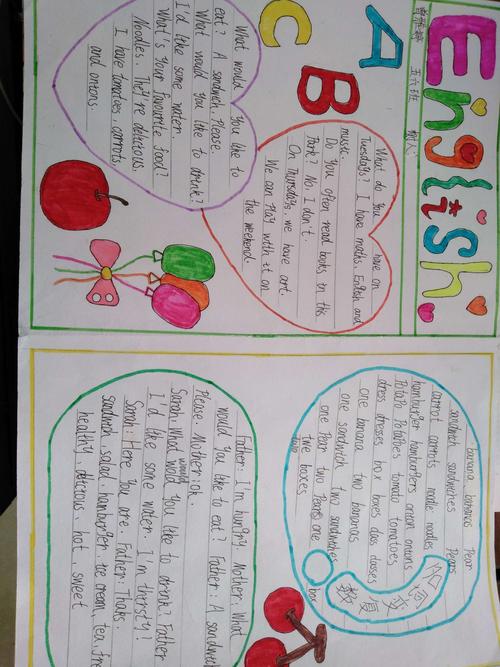 English
五六班
A
B
C
What do you have on
Tuesdays? I have maths, English and
music.
Do you often read books in this
Park? No. I don't.
On Thursdays, we have art.
We can play with it on
the weekend.
What would you like to
eat? A sandwich, Please.
What would you like to drink?
I'd like some water.
What's your favourite food?
Noodles. They're delicious.
I have tomatoes, carrots,
and onions.
banana bananas Pear
sandwich sandwiches Pears
carrot carrots noodle noodles
hamburger hamburgers onion onions
Potato Potatoes tomato tomatoes
dress dresses box boxes
one banana two bananas
one sandwich two sandwiches
one Pear two Pears one box
two boxes
可
变
复
数
Father: I'm hungry. Mother: What
would you like to eat? Father: A sandwich
Please. Mother: ok.
Sarah: What would you like to drink? Father
I'd like some water. I'm thirsty!
Sarah: Here you are. Father: Thanks.
sandwich salad hamburger ice cream, tea, fre
healthy, delicious, hot, sweet